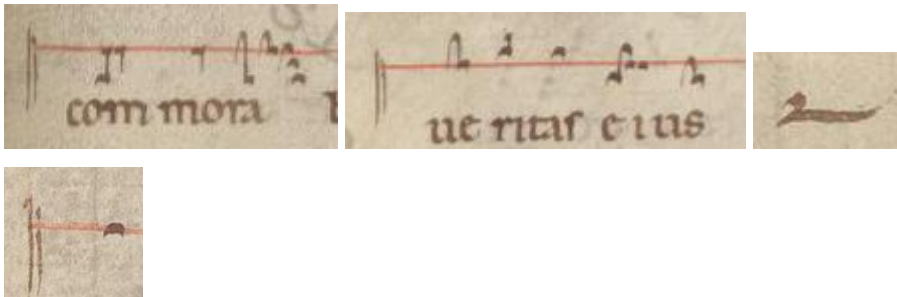 com mora
ue ritas e ius